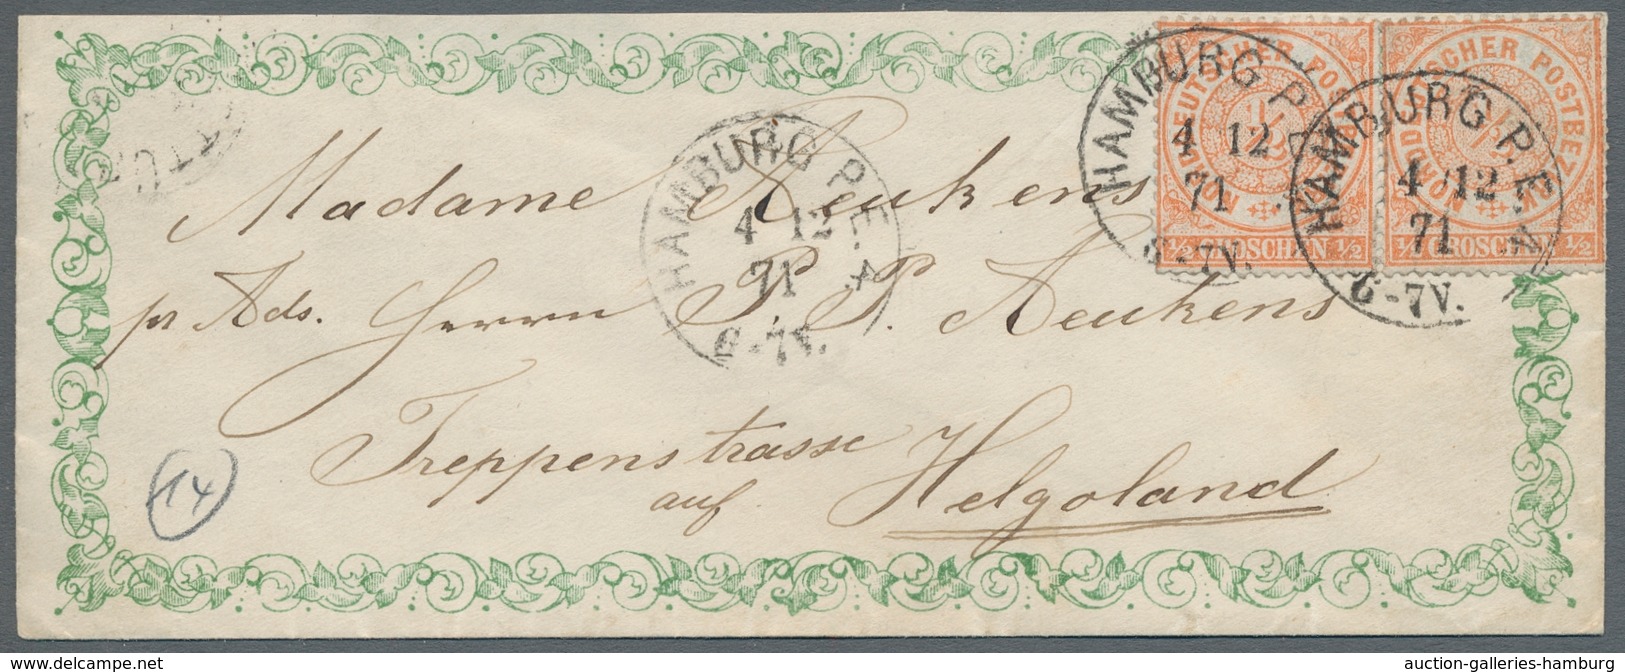 NORDDEUTSCHER POSTBEZIRK
1/2
1/2 GROSCHEN 1/2
NORDDEUTSCHER POSTBEZIRK
1/2
1/2 GROSCHEN 1/2
HAMBURG P.E.
4 12
71
6-7V.
HAMBURG P.E.
4 12
71
6-7V.
HAMBURG P.E.
4 12
71
6-7V.
Madame Aeukens
pr Ads. Herrn P. P. Aeukens
Treppenstrasse
auf Helgoland
14
www.delcampe.net
auction-galleries-hamburg